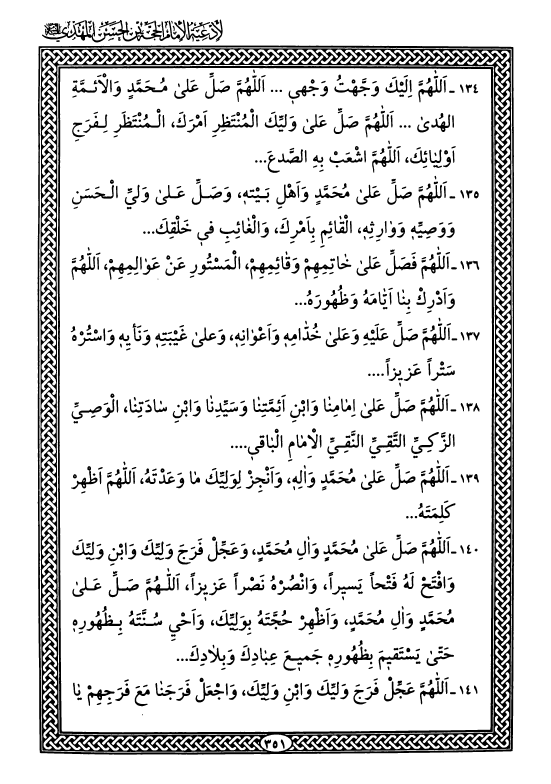 لأدعية الإمام الحجة بن الحسن المهدي
١٣٤ـ اَللّٰهُمَّ اِلَيْكَ وَجَّهْتُ وَجْهي ... اَللّٰهُمَّ صَلِّ عَلىٰ مُحَمَّدٍ وَالْاَئِـمَّةِ
الهُدىٰ ... اَللّٰهُمَّ صَلِّ عَلىٰ وَلِيِّكَ الْمُنْتَظِرِ اَمْرَكَ، الْـمُنْتَظَرِ لِـفَرَجِ
اَوْلِيٰائِكَ، اَللّٰهُمَّ اشْعَبْ بِهِ الصَّدعَ...
١٣٥ـ اَللّٰهُمَّ صَلِّ عَلىٰ مُحَمَّدٍ وَاَهْلِ بَـيْتِهِ، وَصَـلِّ عَـلىٰ وَلِيِّ الْـحَسَنِ
وَوَصِيِّهِ وَوٰارِثِهِ، الْقٰائِمِ بِاَمْرِكَ، وَالْغٰائِبِ في خَلْقِكَ...
١٣٦ـ اَللّٰهُمَّ فَصَلِّ عَلىٰ خٰاتِمِهِمْ وَقٰائِمِهِمْ، الْمَسْتُورِ عَنْ عَوٰالِمِهِمْ، اَللّٰهُمَّ
وَاَدْرِكْ بِنٰا اَيّٰامَهُ وَظُهُورَهُ...
١٣٧ـ اَللّٰهُمَّ صَلِّ عَلَيْهِ وَعَلىٰ خُدّٰامِهِ وَاَعْوٰانِهِ، وَعلىٰ غَيْبَتِهِ وَنَأْيِهِ وَاسْتُرْهُ
سَتْراً عَزيزاً....
١٣٨ـ اَللّٰهُمَّ صَلِّ عَلىٰ اِمٰامِنٰا وَابْنِ اَئِمَّتِنٰا وَسَيِّدِنٰا وَابْنِ سٰادَتِنٰا، الْوَصِيِّ
الزَّكِيِّ التَّقِيِّ النَّقِيِّ الْاِمٰامِ الْبٰاقي....
١٣٩ـ اَللّٰهُمَّ صَلِّ عَلىٰ مُحَمَّدٍ وَالِهِ، وَاَنْجِزْ لِوَلِيِّكَ مٰا وَعَدْتَهُ، اَللّٰهُمَّ اَظْهِرْ
كَلِمَتَهُ...
١٤٠ـ اَللّٰهُمَّ صَلِّ عَلىٰ مُحَمَّدٍ وَاٰلِ مُحَمَّدٍ، وَعَجِّلْ فَرَجَ وَلِيِّكَ وَابْنِ وَلِيِّكَ
وَافْتَحْ لَهُ فَتْحاً يَسيراً، وَانْصُرْهُ نَصْراً عَزيزاً، اَللّٰـهُمَّ صَـلِّ عَـلىٰ
مُحَمَّدٍ وَاٰلِ مُحَمَّدٍ، وَاَظْهِرْ حُجَّتَهُ بِوَلِيِّكَ، وَاَحْيِ سُنَّتَهُ بِـظُهُورِهِ
حَتّىٰ يَسْتَقيمَ بِظُهُورِهِ جَميـعَ عِبٰادِكَ وَبِلاٰدِكَ...
١٤١ـ اَللّٰهُمَّ عَجِّلْ فَرَجَ وَلِيِّكَ وَابْنِ وَلِيِّكَ، وَاجْعَلْ فَرَجَنٰا مَعَ فَرَجِهِمْ يٰا
٣٥١